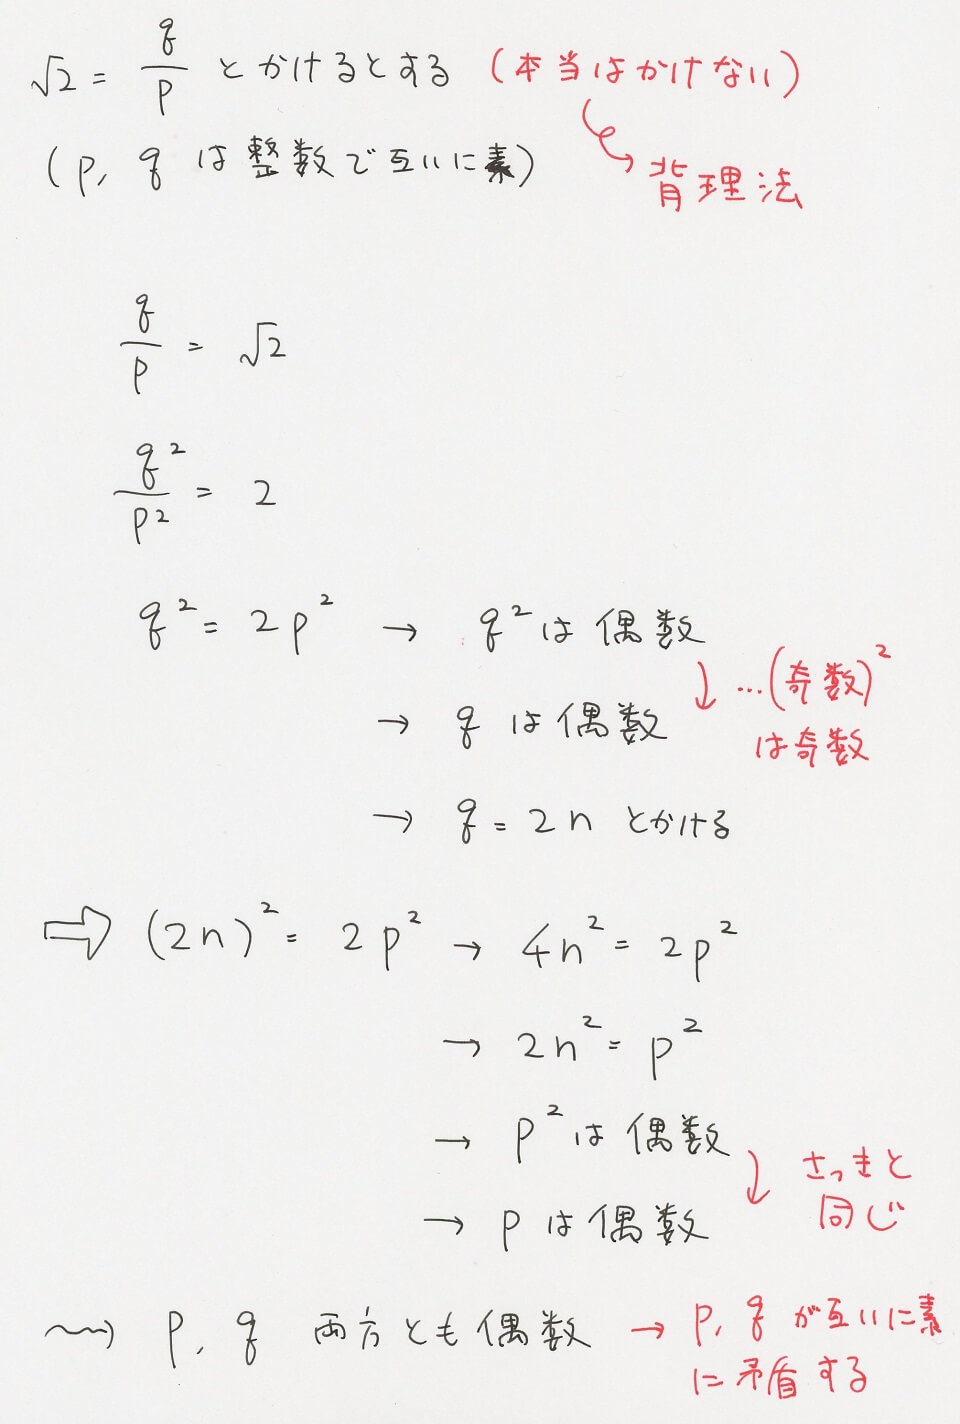 √2 = q/p とかけるとする (本当はかけない)
(p, q は整数で互いに素)
背理法
q/p = √2
q²/p² = 2
q² = 2p² → q² は 偶数
→ q は 偶数
↓ …(奇数)²
は奇数
→ q = 2n とかける
⇨ (2n)² = 2p² → 4n² = 2p²
→ 2n² = p²
→ p² は 偶数
→ p は 偶数
↓ さっきと
同じ
⇝ p, q 両方とも偶数 → p, q が互いに素
に矛盾する